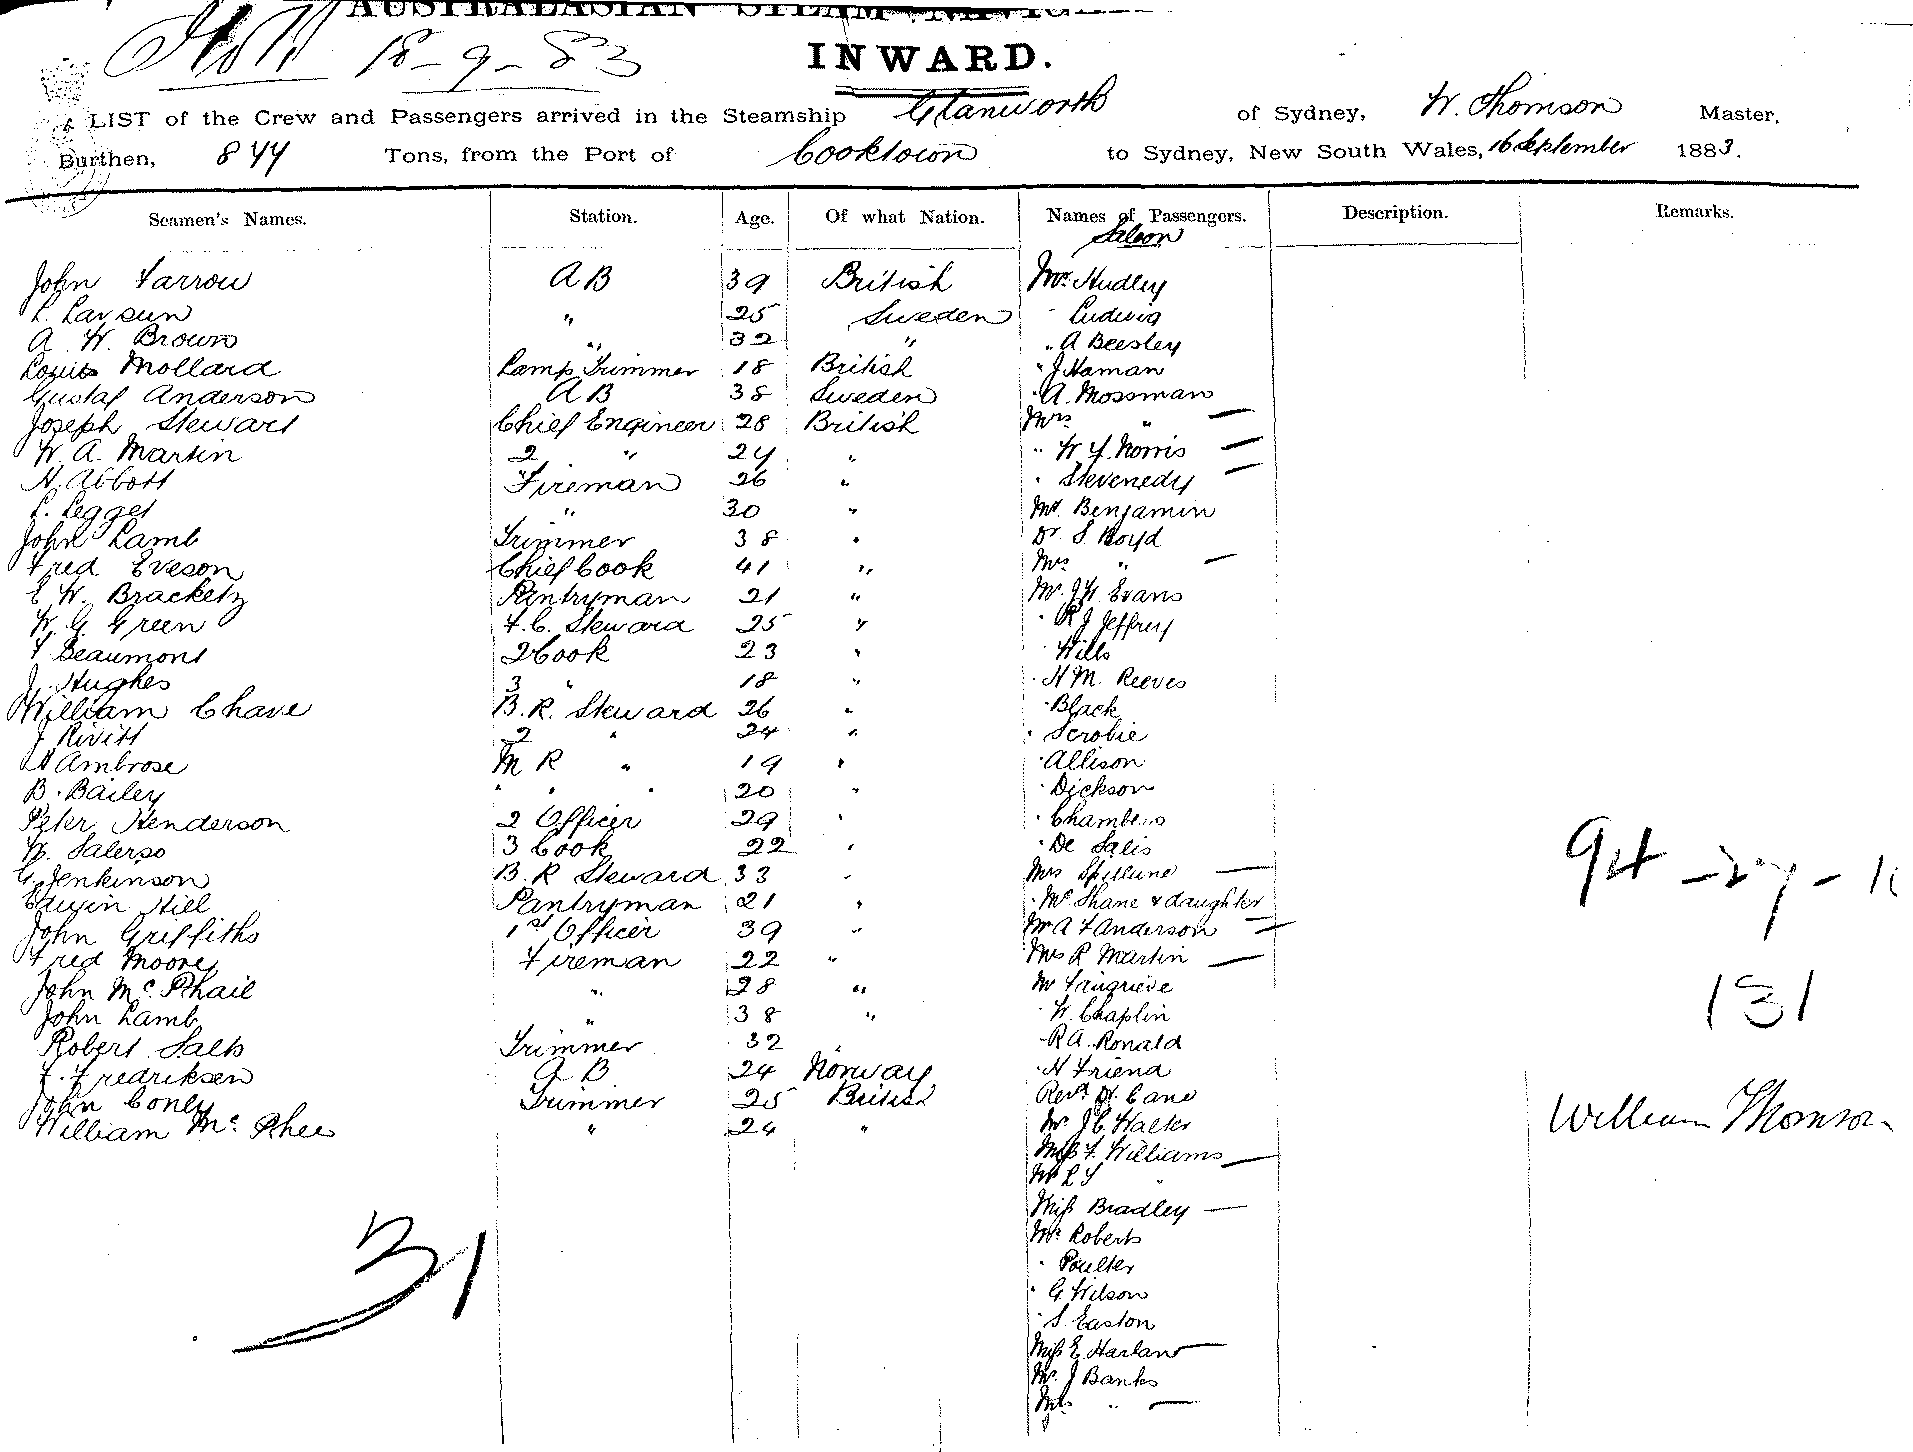 AUSTRALASIAN STEAM NAVIG
18-9-83
INWARD.
LIST of the Crew and Passengers arrived in the Steamship Glanworth of Sydney, W. Thomson Master,
Burthen, 844 Tons, from the Port of Cooktown to Sydney, New South Wales, 16 September 1883.
Seamen's Names. Station. Age. Of what Nation. Names of Passengers. Description. Remarks.
Saloon
John Farrow A B 39 British Mr. Hudley
L. Larsen " 25 Sweden " Ludwig
A. W. Brown " 32 " " A Beesley
Louis Mollard Lamp Trimmer 18 British " J Haman
Gustaf Anderson A B 38 Sweden " A. Mossman
Joseph Stewart Chief Engineer 28 British Mrs " —
W. A. Martin 2 " 24 " " W Y. Norris —
H. Abbott Fireman 26 " " —
L. Legget " 30 " Mr. Benjamin
John Lamb Trimmer 38 " Dr. S. Boyd
Fred Eveson Chief Cook 41 " Mrs " —
E W. Bracketz Pantryman 21 " Mr. J W. Evans
W. G. Green F. C. Steward 25 " " R J Jeffrey
F Beaumont 2 Cook 23 " " Wills
J. Hughes 3 " 18 " " H M. Reeves
William Chave B. R. Steward 26 " " Black
J Rivitt 2 " 24 " " Scrobie
H Ambrose M R " 19 " " Allison
B. Bailey " " " 20 " " Dickson
Peter Henderson 2 Officer 29 " " Chambers
W. Salerso 3 Cook 22 " " De Salis
G. Jenkinson B. R Steward 33 " Mrs —
Edwin Hill Pantryman 21 " " Mc Shane & daughter
John Griffiths 1st Officer 39 " Mr A F Anderson —
Fred Moore Fireman 22 " Mrs R Martin —
John Mc Phail " 28 " Mr Fingrieve
John Lamb " 38 " " W. Chaplin
Robert Salts Trimmer 32 " " R A. Ronald
F. Fredriksen A B 24 Norway " H Friend
John Conley Trimmer 25 British Revd. H. Cane
William Mc Phee " 24 " Mr J C Walter
Miss F. Williams —
Mr L Y "
Miss Bradley —
Mr. Roberts
" Poulter
" G Wilson
" S. Easton
Miss E Harlaw —
Mr. J Banks
Mrs " —
94 - 27 - 10
131
William Thomson
31